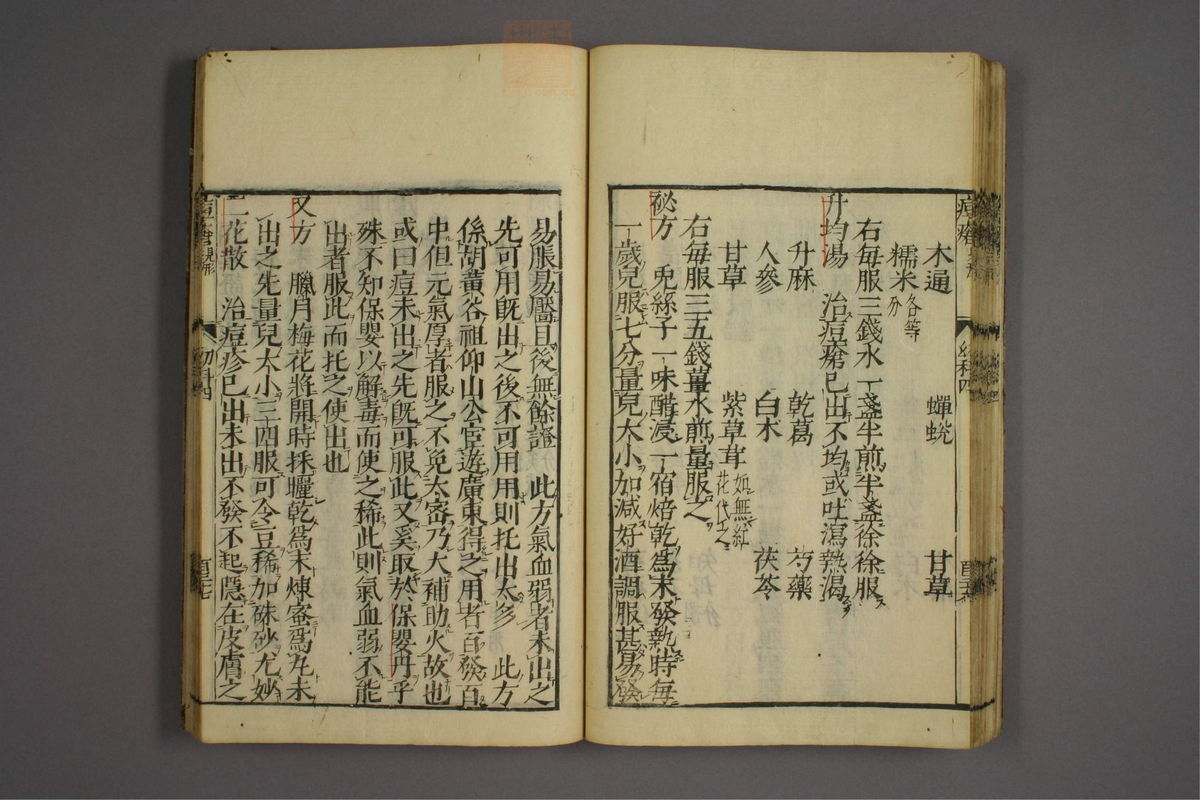 木通 蟬蛻 甘草
糯米各等分
右每服三錢水一盞半煎半盞徐徐服
升均湯 治痘瘡已出不均或吐瀉熱渴
升麻 乾葛 芍藥
人參 白朮 茯苓
甘草 紫草茸如無紅花代之
右每服三五錢薑水煎量服之
秘方 兔絲子一味醋浸一宿焙乾爲末發熱時每
一歲兒服七分量兒大小加減好酒調服甚易發
易脹易靨且後無餘證 此方氣血弱者未出之
先可用既出之後不可用用則托出太多 此方
係胡黃谷祖仰山公宦遊廣東得之用者百發百
中但元氣厚者服之不免太密乃大補助火故也
或曰痘未出之先既可服此又奚取於保嬰丹乎
殊不知保嬰以解毒而使之稀此則氣血弱不能
出者服此而托之使出也
又方 臘月梅花將開時採曬乾爲末煉蜜爲丸未
出之先量兒大小三四服可令豆稀加硃砂尤妙
二花散 治痘疹已出未出不發不起隱在皮膚之
幼科四